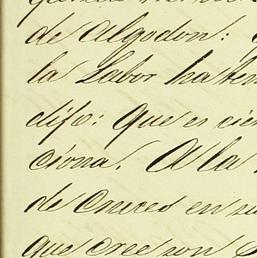 de Algodon:
la Labor haben
dijo: Que es cier
ciona. A la
de Cruces en su
que cree son